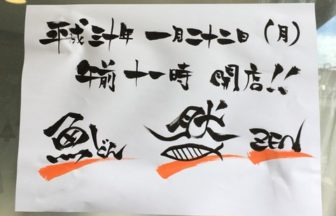 平成三十年 一月二十二日 (月)
午前十一時 開店!!
魚どん 然 ZEN